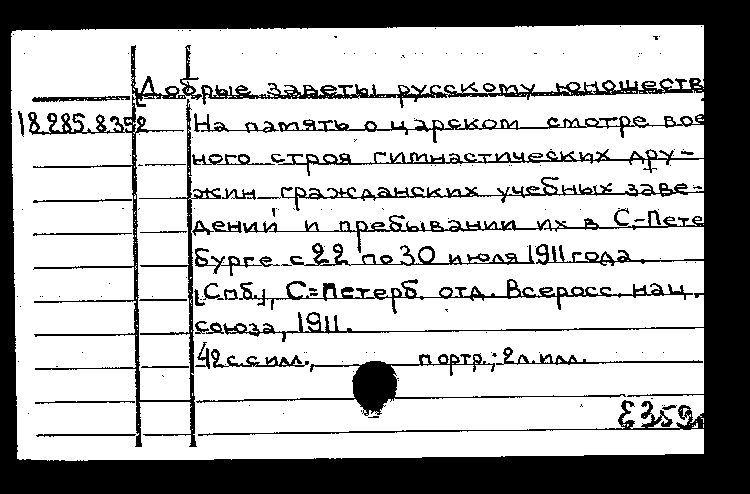 Добрые заветы русскому юношеств
18.285.8352 На память о царском смотре вое
ного строя гимнастических дру-
жин гражданских учебных заве-
дений и пребывании их в С.-Пете
бурге с 22 по 30 июля 1911 года.
[Спб.], С.=Петерб. отд. Всеросс. нац.
союза, 1911.
42 с. с илл., портр.; 2 л. илл.